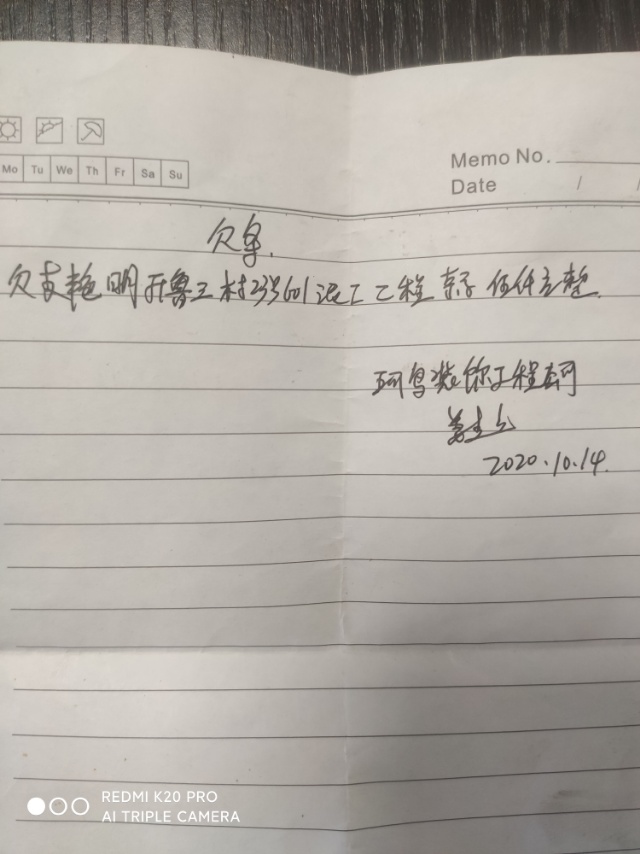 Mo Tu We Th Fr Sa Su
Memo No.
Date / /
欠条.
欠 艳明 鲁王村23号601泥工工程 伍仟元整.
装饰工程
2020.10.14.
REDMI K20 PRO
AI TRIPLE CAMERA